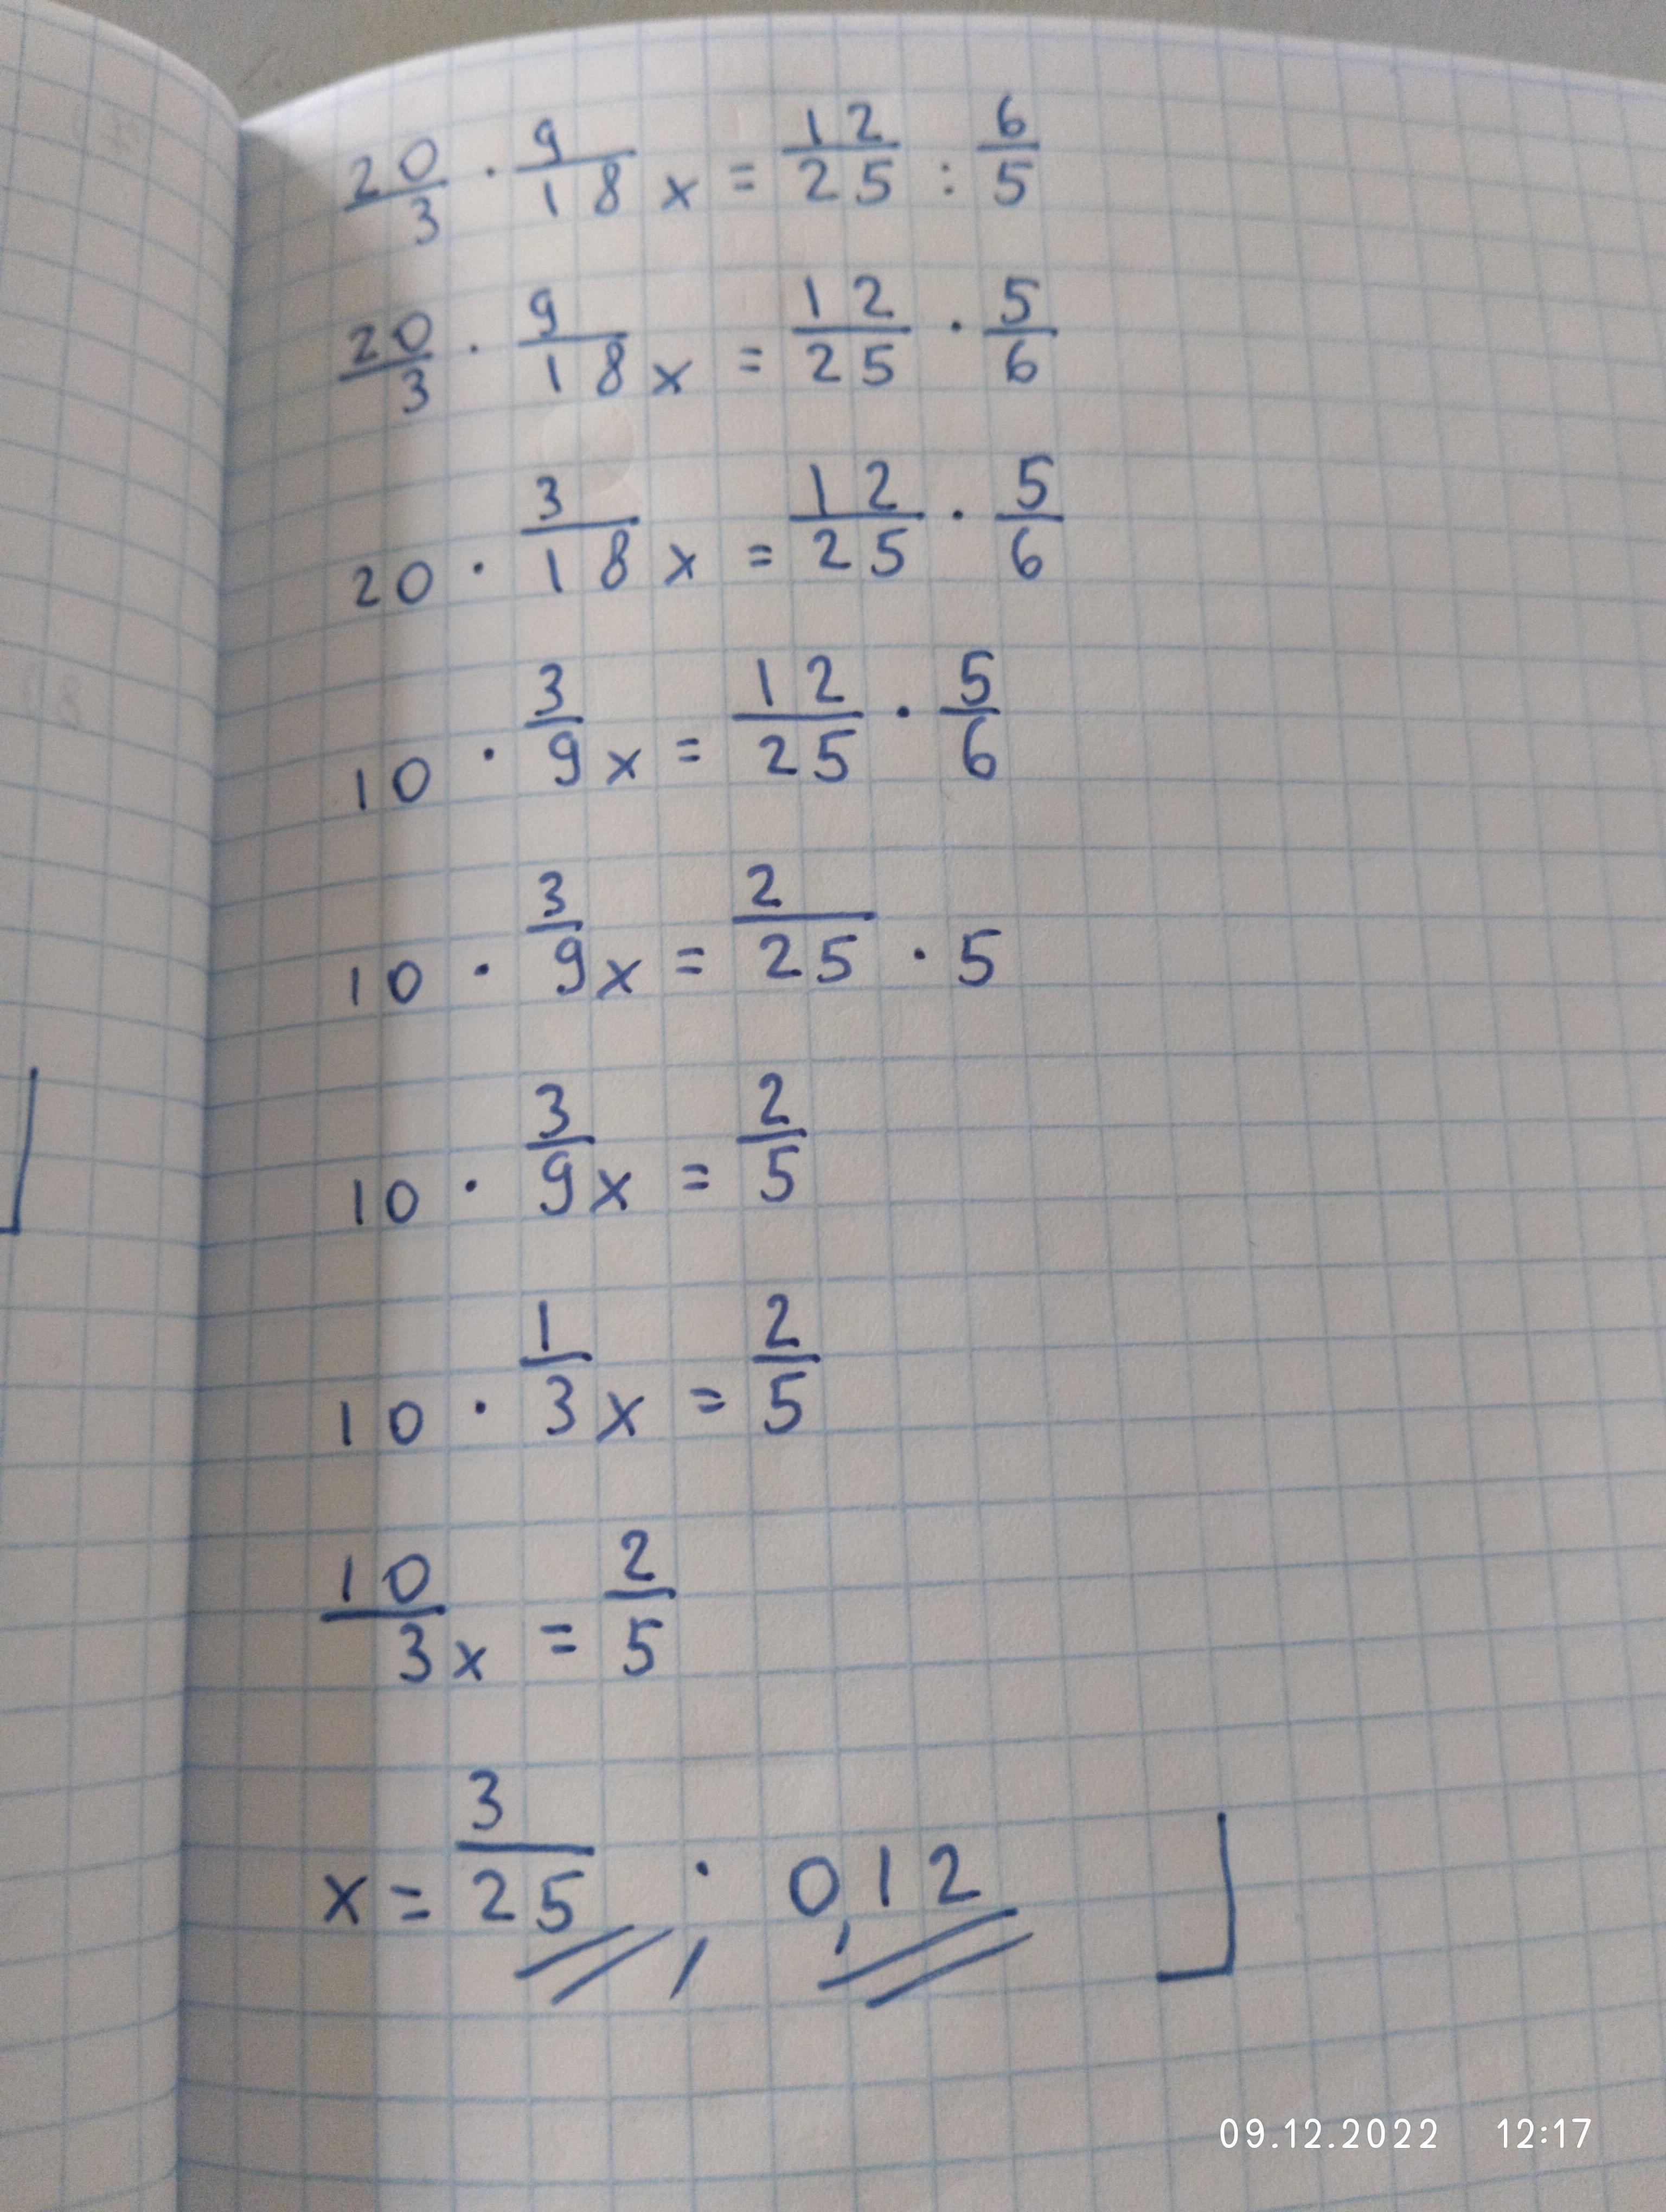 20/3 · 9/18 x = 12/25 : 6/5
20/3 · 9/18 x = 12/25 · 5/6
20 · 3/18 x = 12/25 · 5/6
10 · 3/9 x = 12/25 · 5/6
10 · 3/9 x = 2/25 · 5
10 · 3/9 x = 2/5
10 · 1/3 x = 2/5
10/3 x = 2/5
x = 3/25 ; 0,12
09.12.2022 12:17